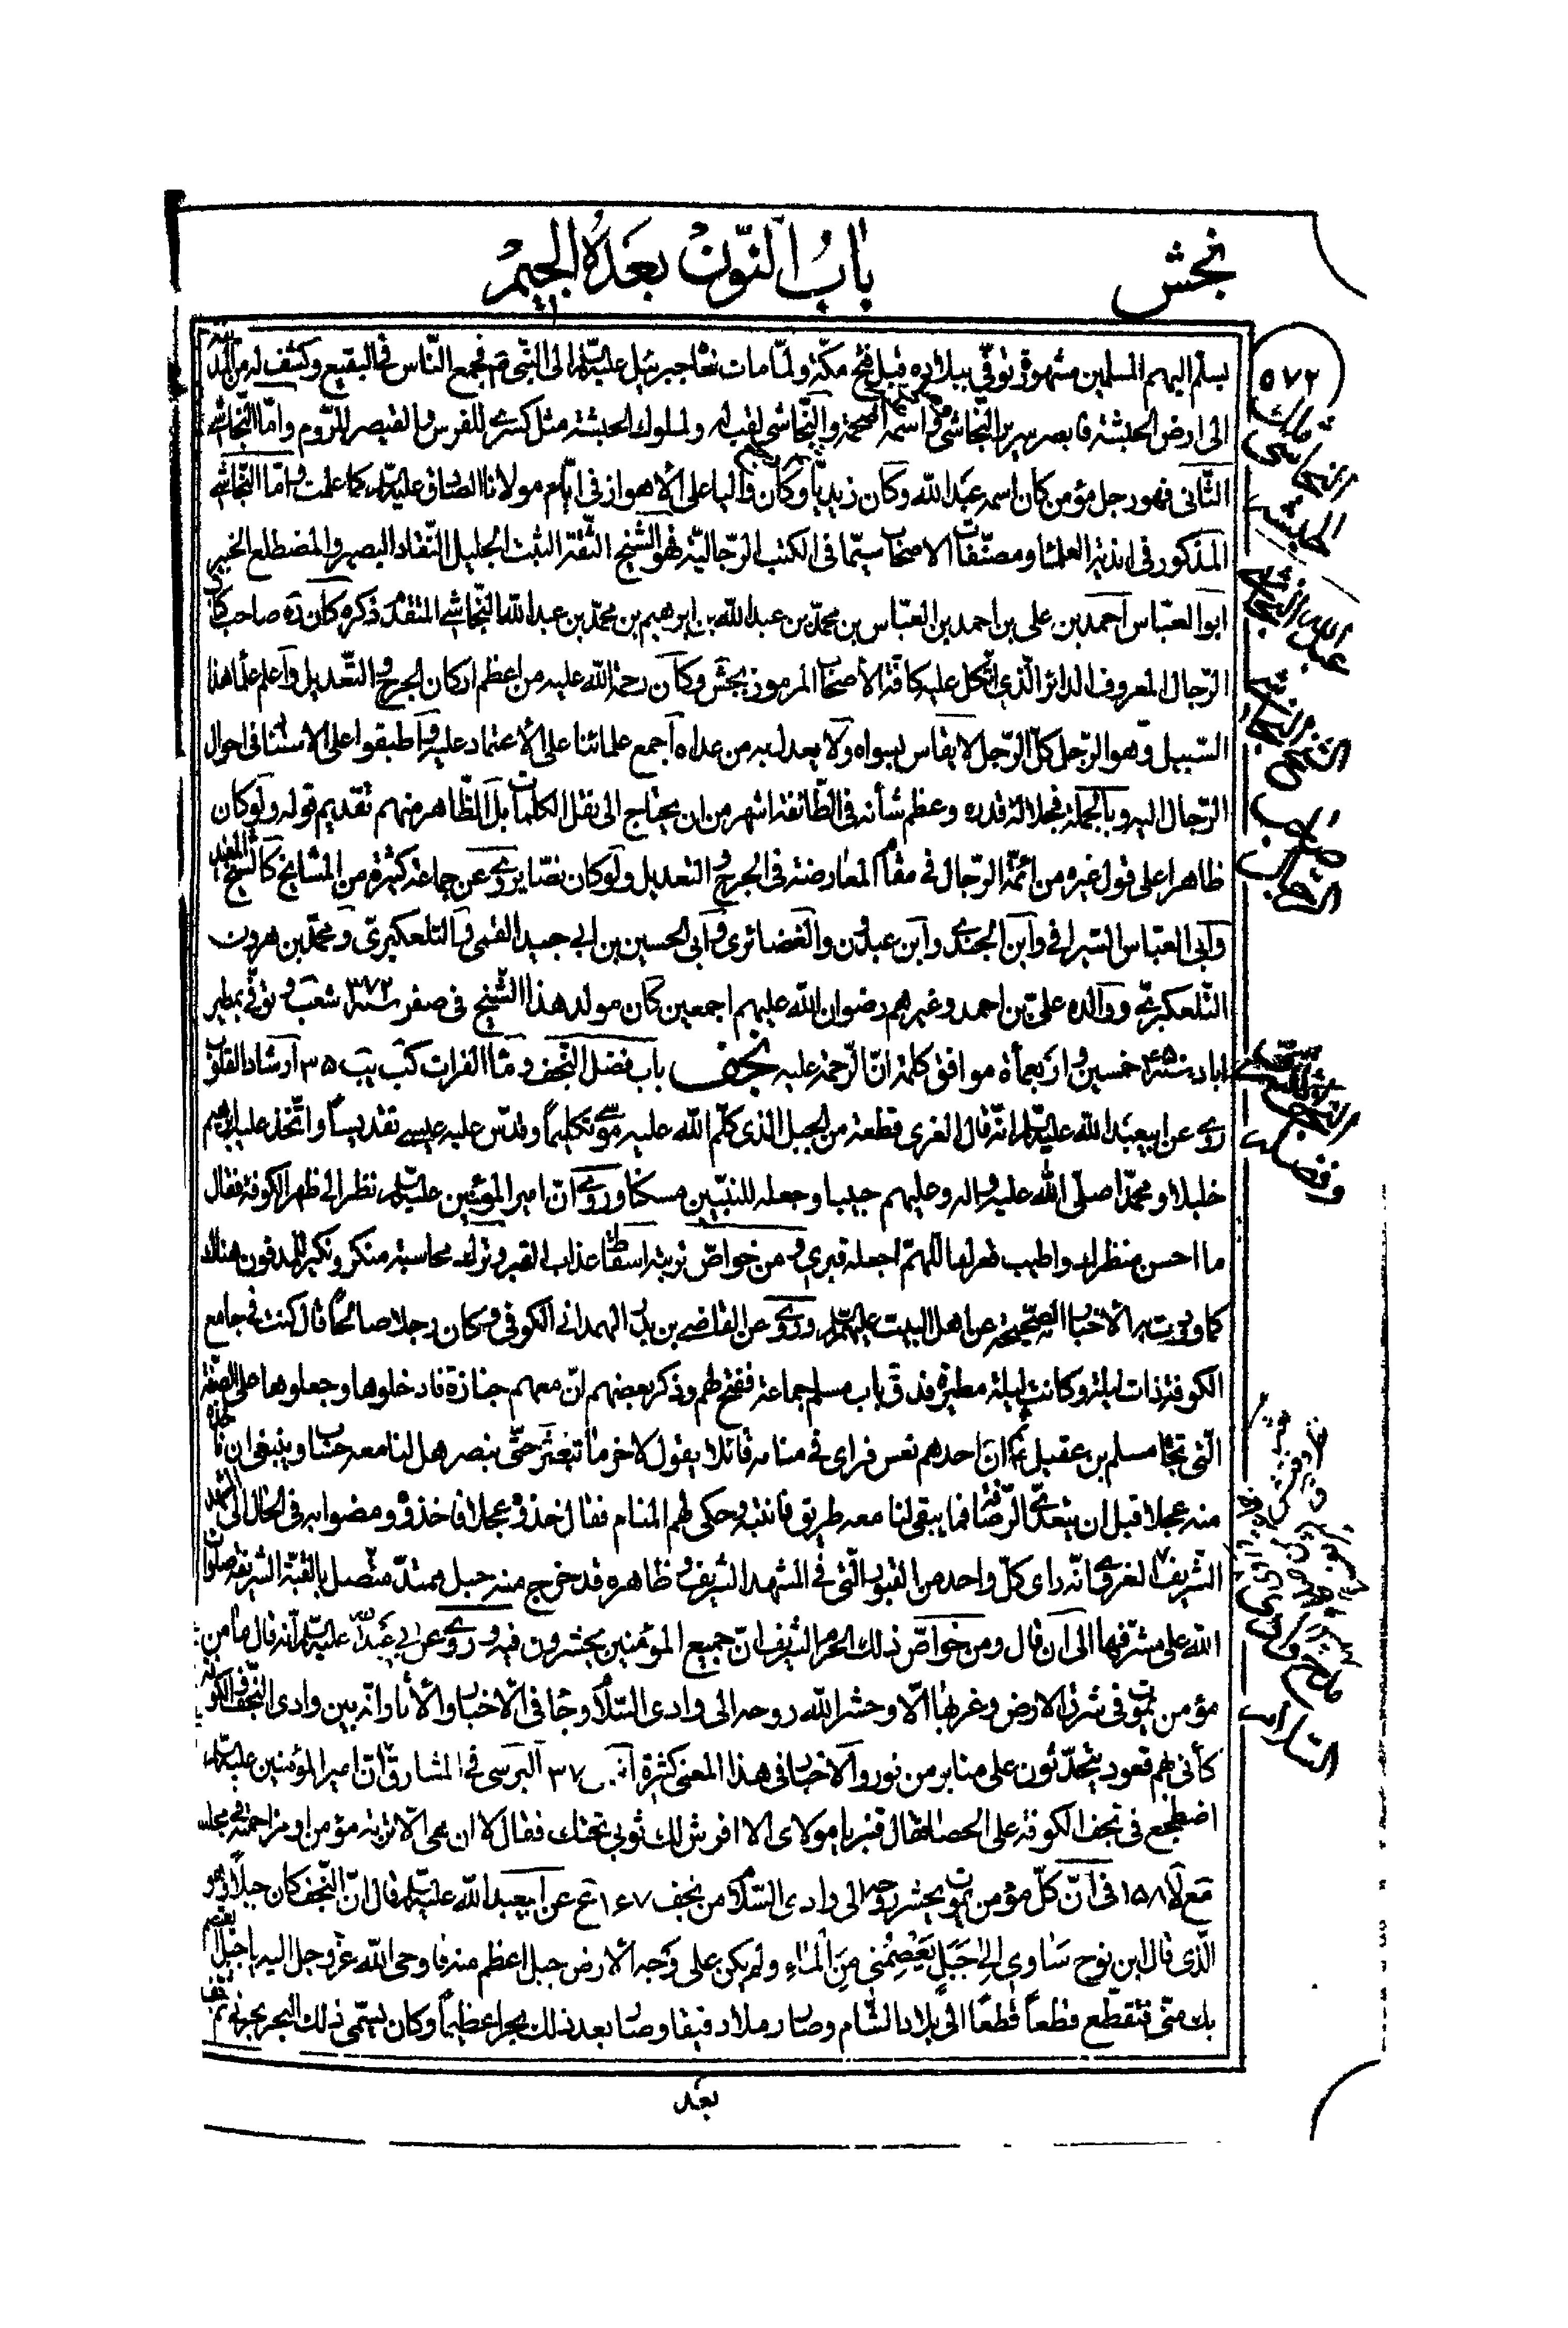 نجش
باب النّون بعده الجيم
٥٧٢
يسلم اليهم المسلمين مشهورة توفّي ببلاده قبل فتح مكّة ولمّا مات نعاه جبرئيل عليه السلم الى النّبي ص فجمع النّاس فى البقيع وكشف له من المدينة
الى ارض الحبشة فابصر سرير النّجاشي واسمه اصحمة والنّجاشي لقب له ولملوك الحبشة مثل كسرى للفرس والقيصر للرّوم وامّا النّجاشي
الثّانى فهو رجل مؤمن كان اسمه عبد الله وكان زيديّا وكان واليا على الأهواز فى ايّام مولانا الصادق عليه السلم كما علمت وامّا النّجاشي
المذكور فى السنة العلماء ومصنّفات الاصحاب سيّما فى الكتب الرّجاليّة فهو الشّيخ الثّقة الثبت الجليل النّقاد البصير والمضطلع الخبير
ابو العبّاس احمد بن على بن احمد بن العبّاس بن محمّد بن عبد الله بن ابرهيم بن محمّد بن عبد الله النّجاشي المتقدّم ذكره كان ره صاحب كتاب
الرّجال المعروف الدائر الّذي اتّكل عليه كافّة الأصحاب المرموز بجش وكان رحمة الله عليه من اعظم اركان الجرح والتّعديل واعلم علماء هذا
السّبيل وهو الرّجل كلّ الرّجل لا يقاس بسواه ولا يعدل به من عداه اجمع علمائنا على الأعتماد عليه واطبقوا على الاستناد فى احوال
الرّجال اليه وبالجملة فجلالة قدره وعظم شأنه فى الطّائفة اشهر من ان يحتاج الى نقل الكلمات بل الظّاهر منهم تقديم قوله ولو كان
ظاهرا على قول غيره من ائمّة الرّجال فى مقام المعارضة فى الجرح والتعديل ولو كان نصّا يروى عن جماعة كثيرة من المشايخ كالشّيخ المفيد
وابى العبّاس السّيرافي وابن الجندى وابن عبدون والغضائرى وابى الحسين بن ابى جيد القمى والتلعكبرى ومحمّد بن هرون
التّلعكبرى ووالده علىّ بن احمد وغيرهم رضوان الله عليهم اجمعين كان مولد هذا الشّيخ فى صفر سنة ٣٧٢ شعب وتوفّي بمطير
اباد سنة ٤٥٠ خمسين واربعمأة موافق كلمة انّ الرّحمة عليه نجف باب فضل النّجف وماء الفرات كب يب ٣٥ ارشاد القلوب
روى عن ابيعبد الله عليه السلم انّه قال الغرى قطعة من الجبل الذى كلّم الله عليه موسى تكليماً وقدّس عليه عيسى تقديساً واتّخذ عليه ابرهيم
خليلا ومحمّدا صلّى الله عليه واله وعليهم حبيبا وجعله للنبيّين مسكنا وروى انّ امير المؤمنين عليه السلم نظر الى ظهر الكوفة فقال
ما احسن منظرك واطيب قعرك اللّهمّ اجعله قبري ومن خواصّ تربته اسقاط عذاب القبر وترك محاسبة منكر ونكير للمدفون هناك
كما وردت به الاخبار الصّحيحة عن اهل البيت عليهم السلم وروى عن القاضى بن بدر الهمدانى الكوفى وكان رجلا صالحاً قال كنت فى جامع
الكوفة ذات ليلة وكانت ليلة مطيرة فدقّ باب مسلم جماعة ففتح لهم وذكر بعضهم انّ معهم جنازة فادخلوها وجعلوها على الصّفة
الّتى تجاه مسلم بن عقيل ثم ان احدهم نعس فراى فى منامه قائلا يقول لاخر ما تبغيه حتّى نبصر هل لنا معه حساب وينبغى ان نأخذه
منه عجلا قبل ان يتعدّى الرّصافة فما يبقى لنا معه طريق فانتبه وحكى لهم المنام فقال خذوه عجلا فاخذوه ومضوا به فى الحال الى المشهد
الشّريف الغروى انّه راى كلّ واحد من القبور الّتى فى المشهد الشريف وظاهره قد خرج منه حبل ممتدّ متّصل بالقبّة الشّريفة صلوات
الله على مشرّفها الى ان قال ومن خواصّ ذلك الحرم الشريف انّ جميع المؤمنين يحشرون فيه وروى عن ابى عبد الله عليه السلم انّه قال ما من
مؤمن يموت فى شرق الارض وغربها الّا وحشر الله روحه الى وادى السّلام وجاء فى الأخبار والأثار انّه بين وادى النّجف والكوفة
كأنى بهم قعود يتحدّثون على منابر من نور والأخبار فى هذا المعنى كثيرة ٣٧ البرسى فى المشارق انّ امير المؤمنين عليه السلم
اضطجع فى نجف الكوفة على الحصا فقال قنبر يا مولاى الا افرش لك ثوبى تحتك فقال لا ان هى الّا تربة مؤمن او مزاحمته فى مجلسه
مع لا ١٥٨ فى انّ كلّ مؤمن يموت يحشر روحه الى وادى السّلام من نجف ١٦٧ ع عن ابيعبد الله عليه السلم قال انّ النّجف كان جبلاً وهو
الّذى قال ابن نوح سَاوى اِلى جَبَلٍ يَعْصِمُني مِنَ الْمٰاءِ ولم يكن على وجه الأرض جبل اعظم منه فاوحى الله عزّ وجل اليه يا جبل ايعتصم
بك منّى فتقطّع قطعاً قطعاً الى بلاد الشّام وصار رملا دقيقا وصار بعد ذلك بحرا عظيماً وكان يسمّى ذلك البحر بحر نى ثم جف
بعد
النجاشى ملك الحبشة
عبد الله النجاشى
الشيخ النجاشى صاحب الرجال
وفضله
وادى السلام